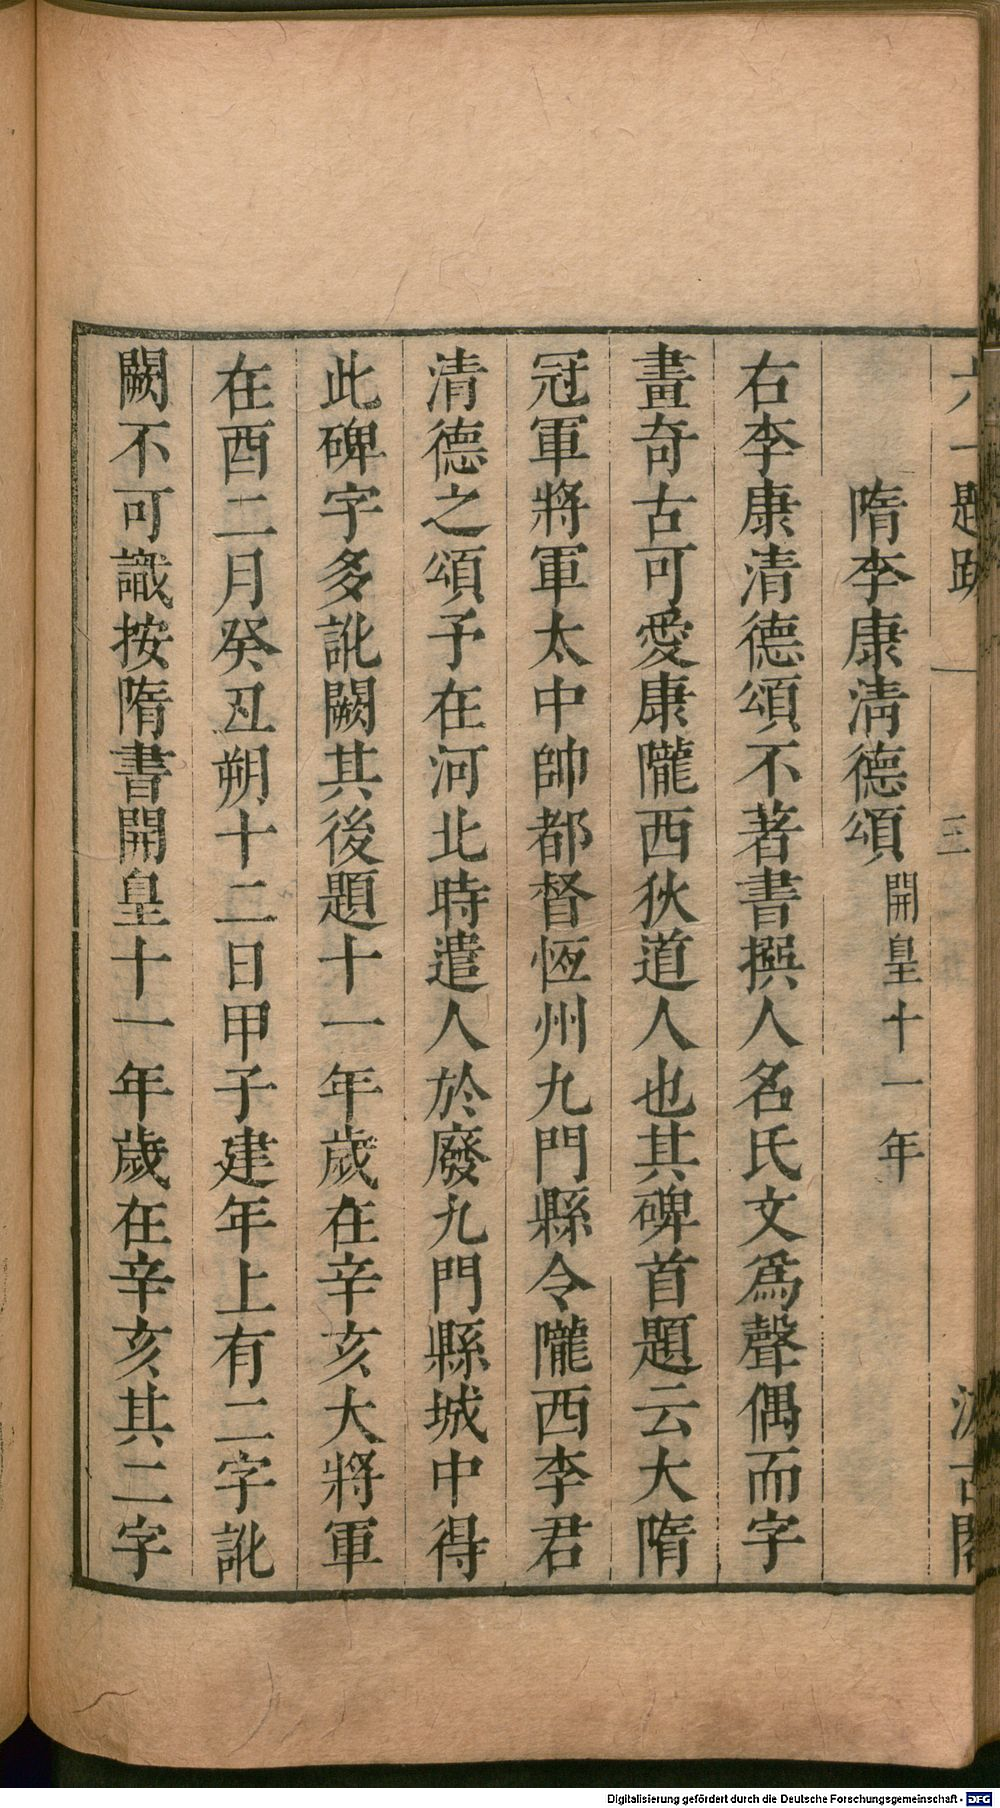 六一題跋 一 三 汲古閣
隋李康淸德頌開皇十一年
右李康清德頌不著書撰人名氏文爲聲偶而字
畫奇古可愛康隴西狄道人也其碑首題云大隋
冠軍將軍太中帥都督恆州九門縣令隴西李君
清德之頌予在河北時遣人於廢九門縣城中得
此碑字多訛闕其後題十一年歲在辛亥大將軍
在酉二月癸丑朔十二日甲子建年上有二字訛
闕不可識按隋書開皇十一年歲在辛亥其二字
Digitalisierung gefördert durch die Deutsche Forschungsgemeinschaft - DFG